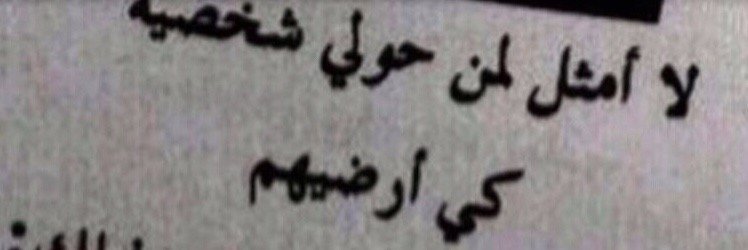 لا أمثل لمن حولي شخصية
كي أرضيهم